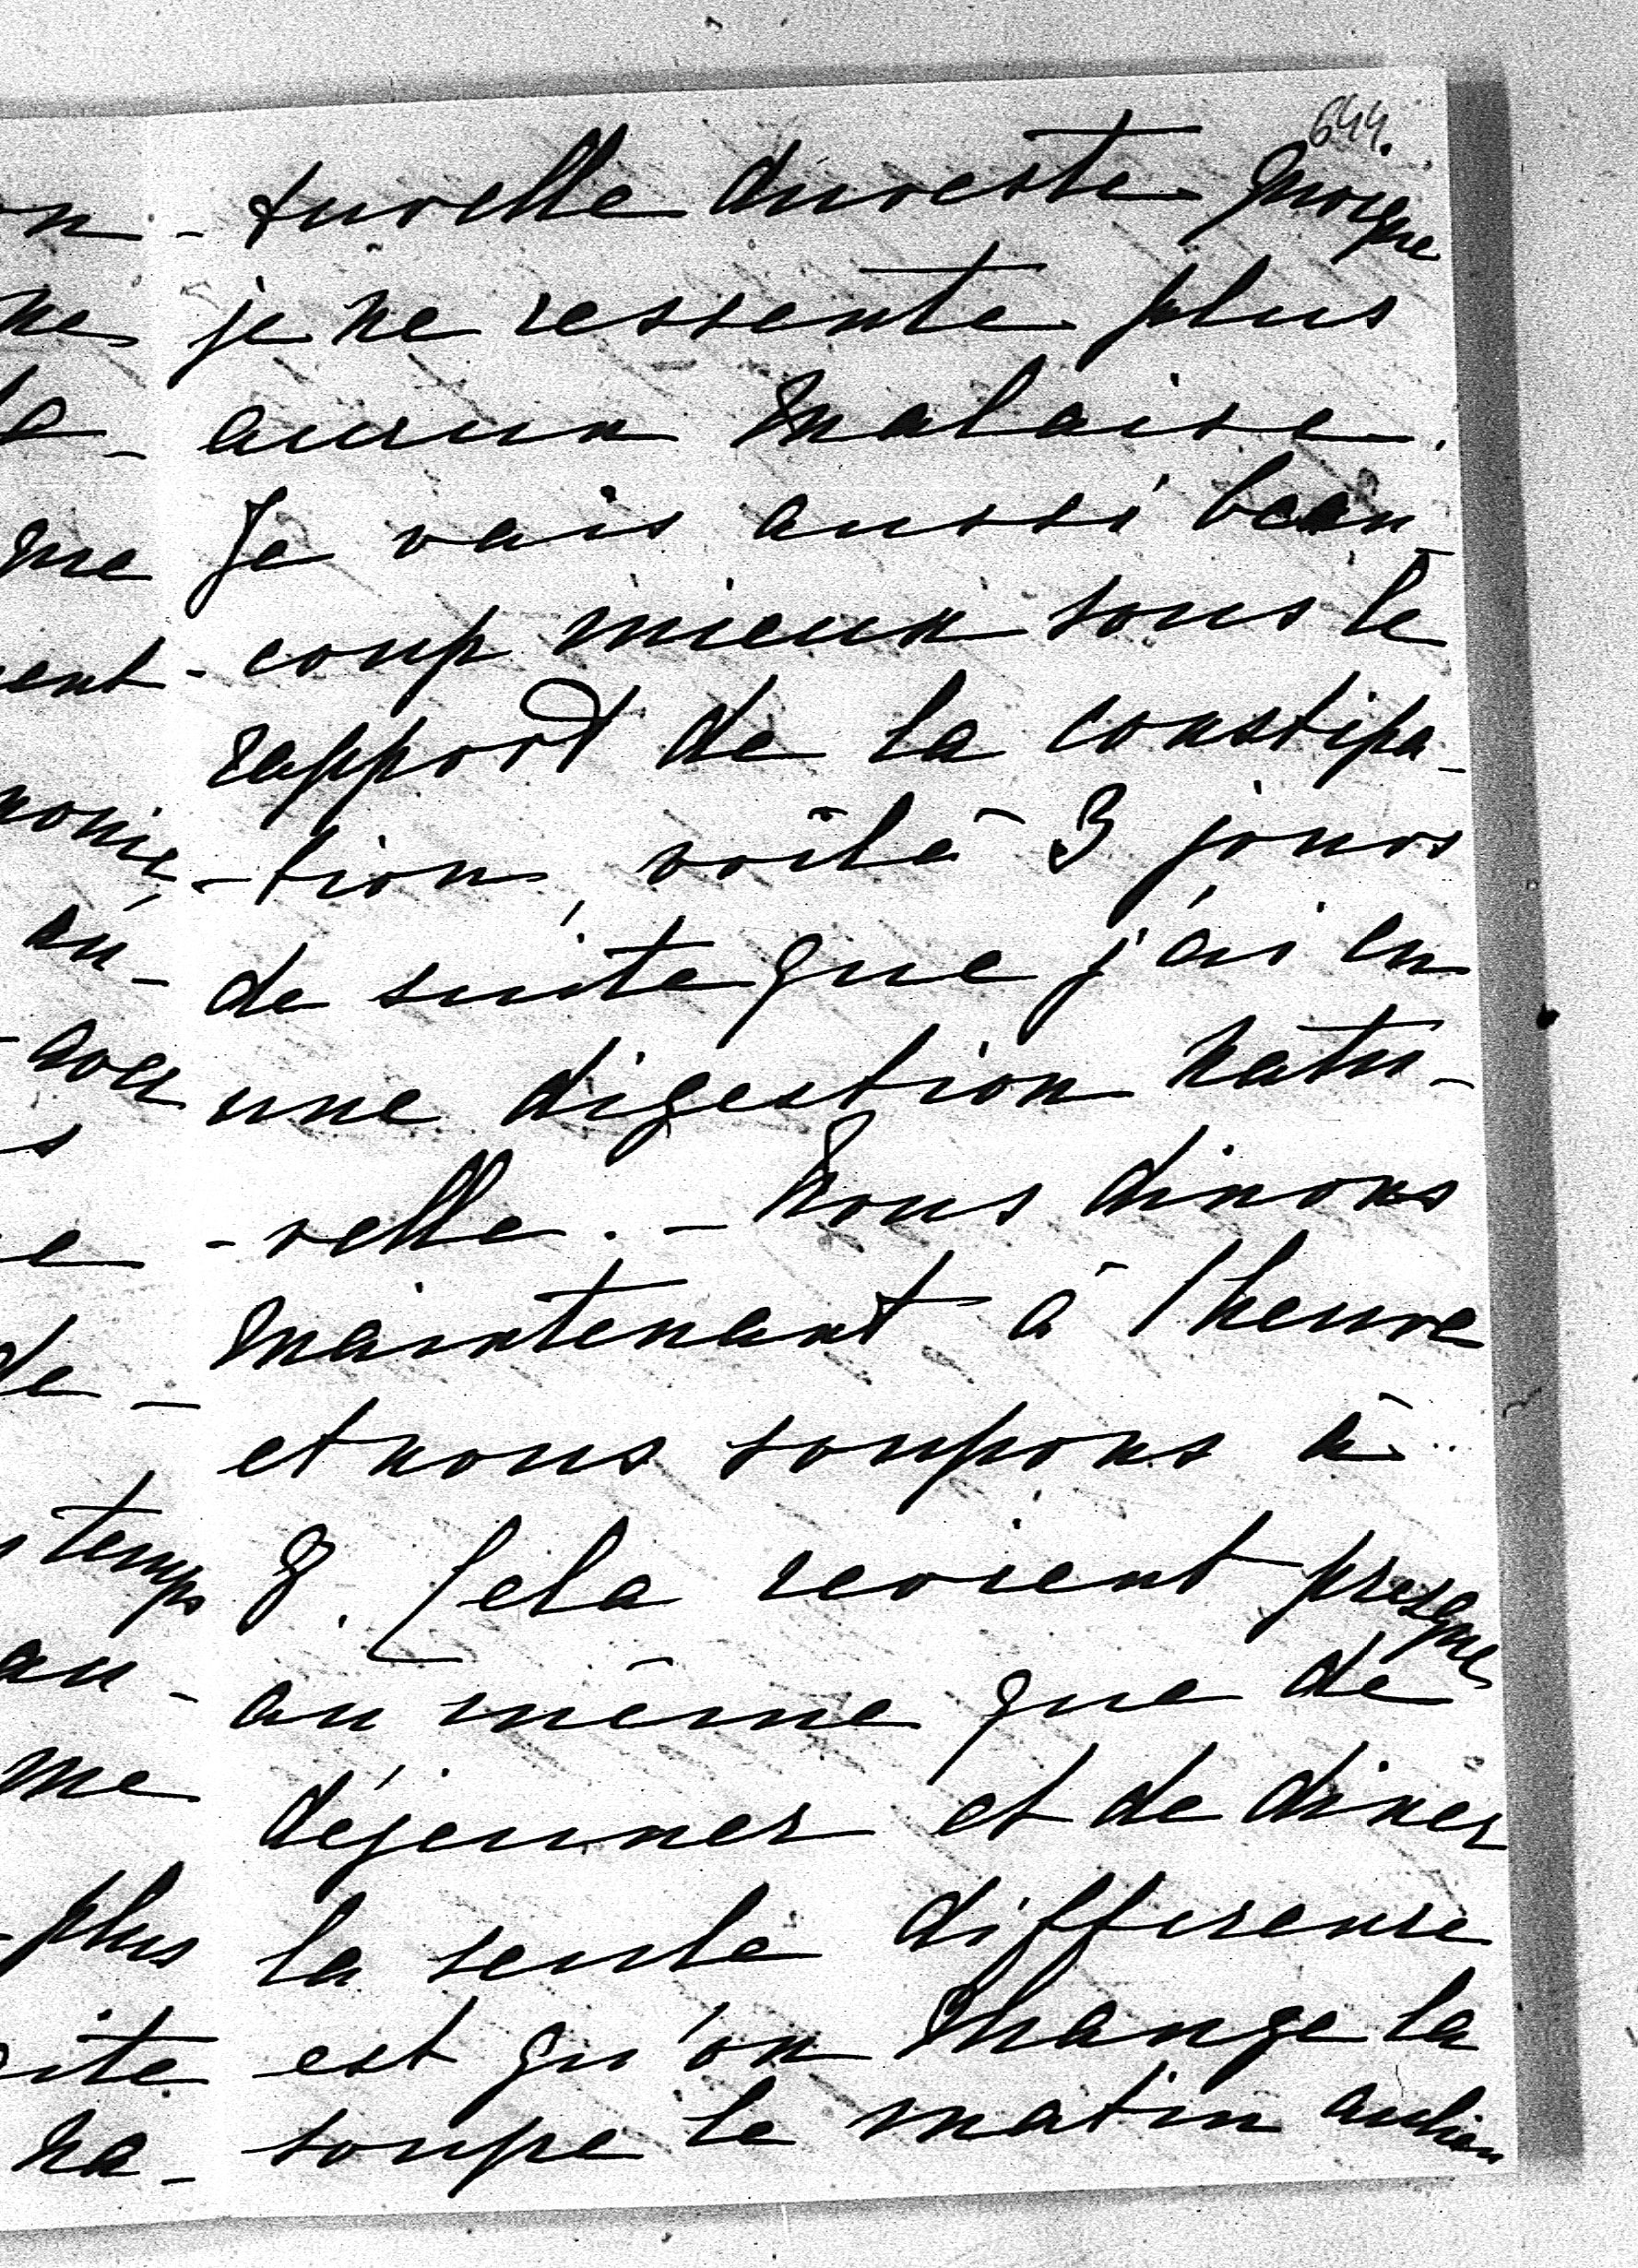 644.
- turelle du reste quoique
je ne ressente plus
aucun malaise.
Je vais aussi beau-
- coup mieux sous le
rapport de la constipa-
- tion, voilà 3 jours
de suite que j'ai eu
une digestion natu-
- relle. - Nous dinons
maintenant à 1 heure
et nous soupons à
8. Cela revient presque
au même que de
déjeuner et de diner
la seule difference
est qu'on mange la
soupe le matin au lieu